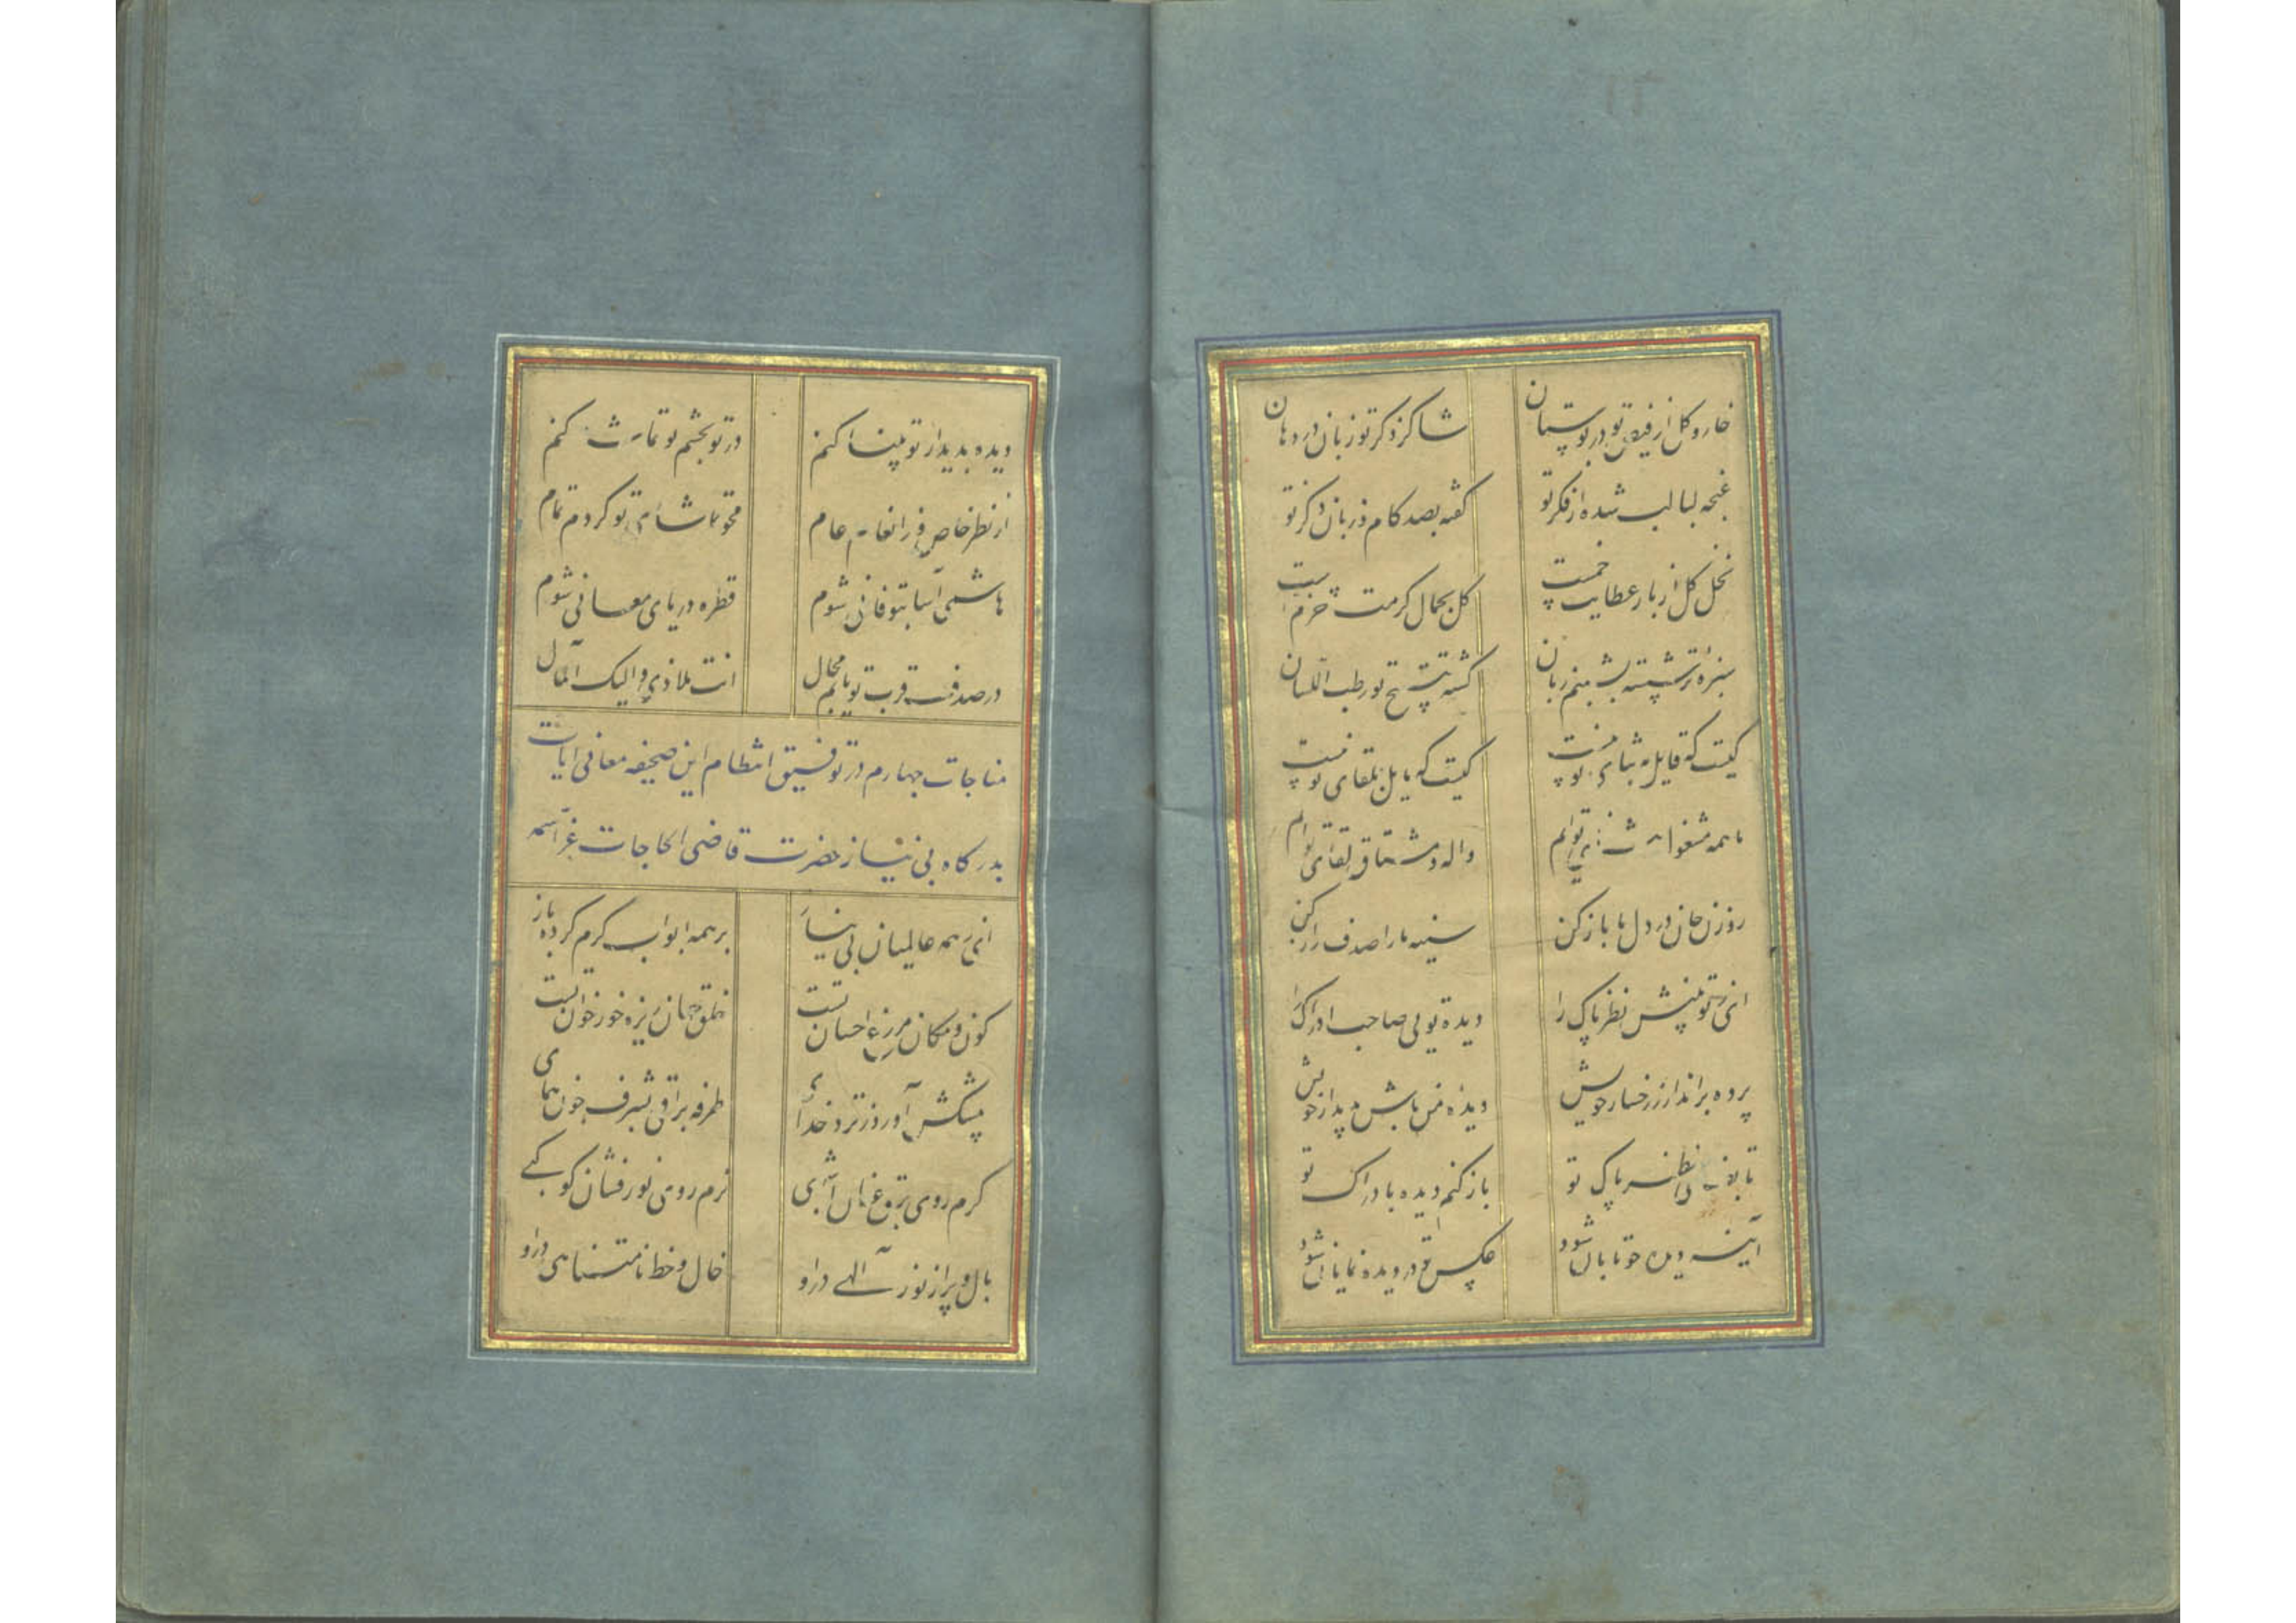 خار و گل از فیض تو در بوستان شاکر ذکر تو زبان در دهان
غنچه لبالب شده از فکر تو گفته بصد کام و زبان ذکر تو
نخل گل از بار عطایت خمست گل بجمال کرمت خرمست
سبزه تر شسته بشبنم زبان گشته بتسبیح تو رطب اللسان
کیست که قایل به ثنای تو نیست کیست که مایل بلقای تو نیست
ما همه مشغول ثنای توایم واله و مشتاق لقای توایم
روزن جان در دل ما باز کن سینه ما را صدف راز کن
ای ز تو بینش نظر پاک را دیده تویی صاحب ادراک را
پرده برانداز ز رخسار خویش دیده من باش و پدیدار خویش
تا به نظر پاک تو باز کنم دیده بادراک تو
آینه دیده چو تابان شود عکس تو در دیده نمایان شود
دیده بدیدار تو بینا کنم در تو بچشم تو تماشا کنم
از نظر خاص و ز انعام عام محو تماشای تو گردم تمام
هاشمی آسا بتو فانی شوم قطره دریای معانی شوم
در صدف قرب تو یابم مجال انت ملاذی و الیک المآل
مناجات چهارم در توفیق انتظام این صحیفه معانی آیات
بدرگاه بی نیاز حضرت قاضی الحاجات عز اسمه
ای ز همه عالمیان بی نیاز بر همه ابواب کرم کرده باز
کون و مکان مزرع احسان تست خلق جهان ریزه خور خوان تست
پیشکش آورد ز نزد خدای طرفه براقی بشرف چون همای
گرم روی برق عنان آتشی نرم روی نورفشان کوکبی
بال و پر از نور الهی در او خال و خط نامتناهی در او